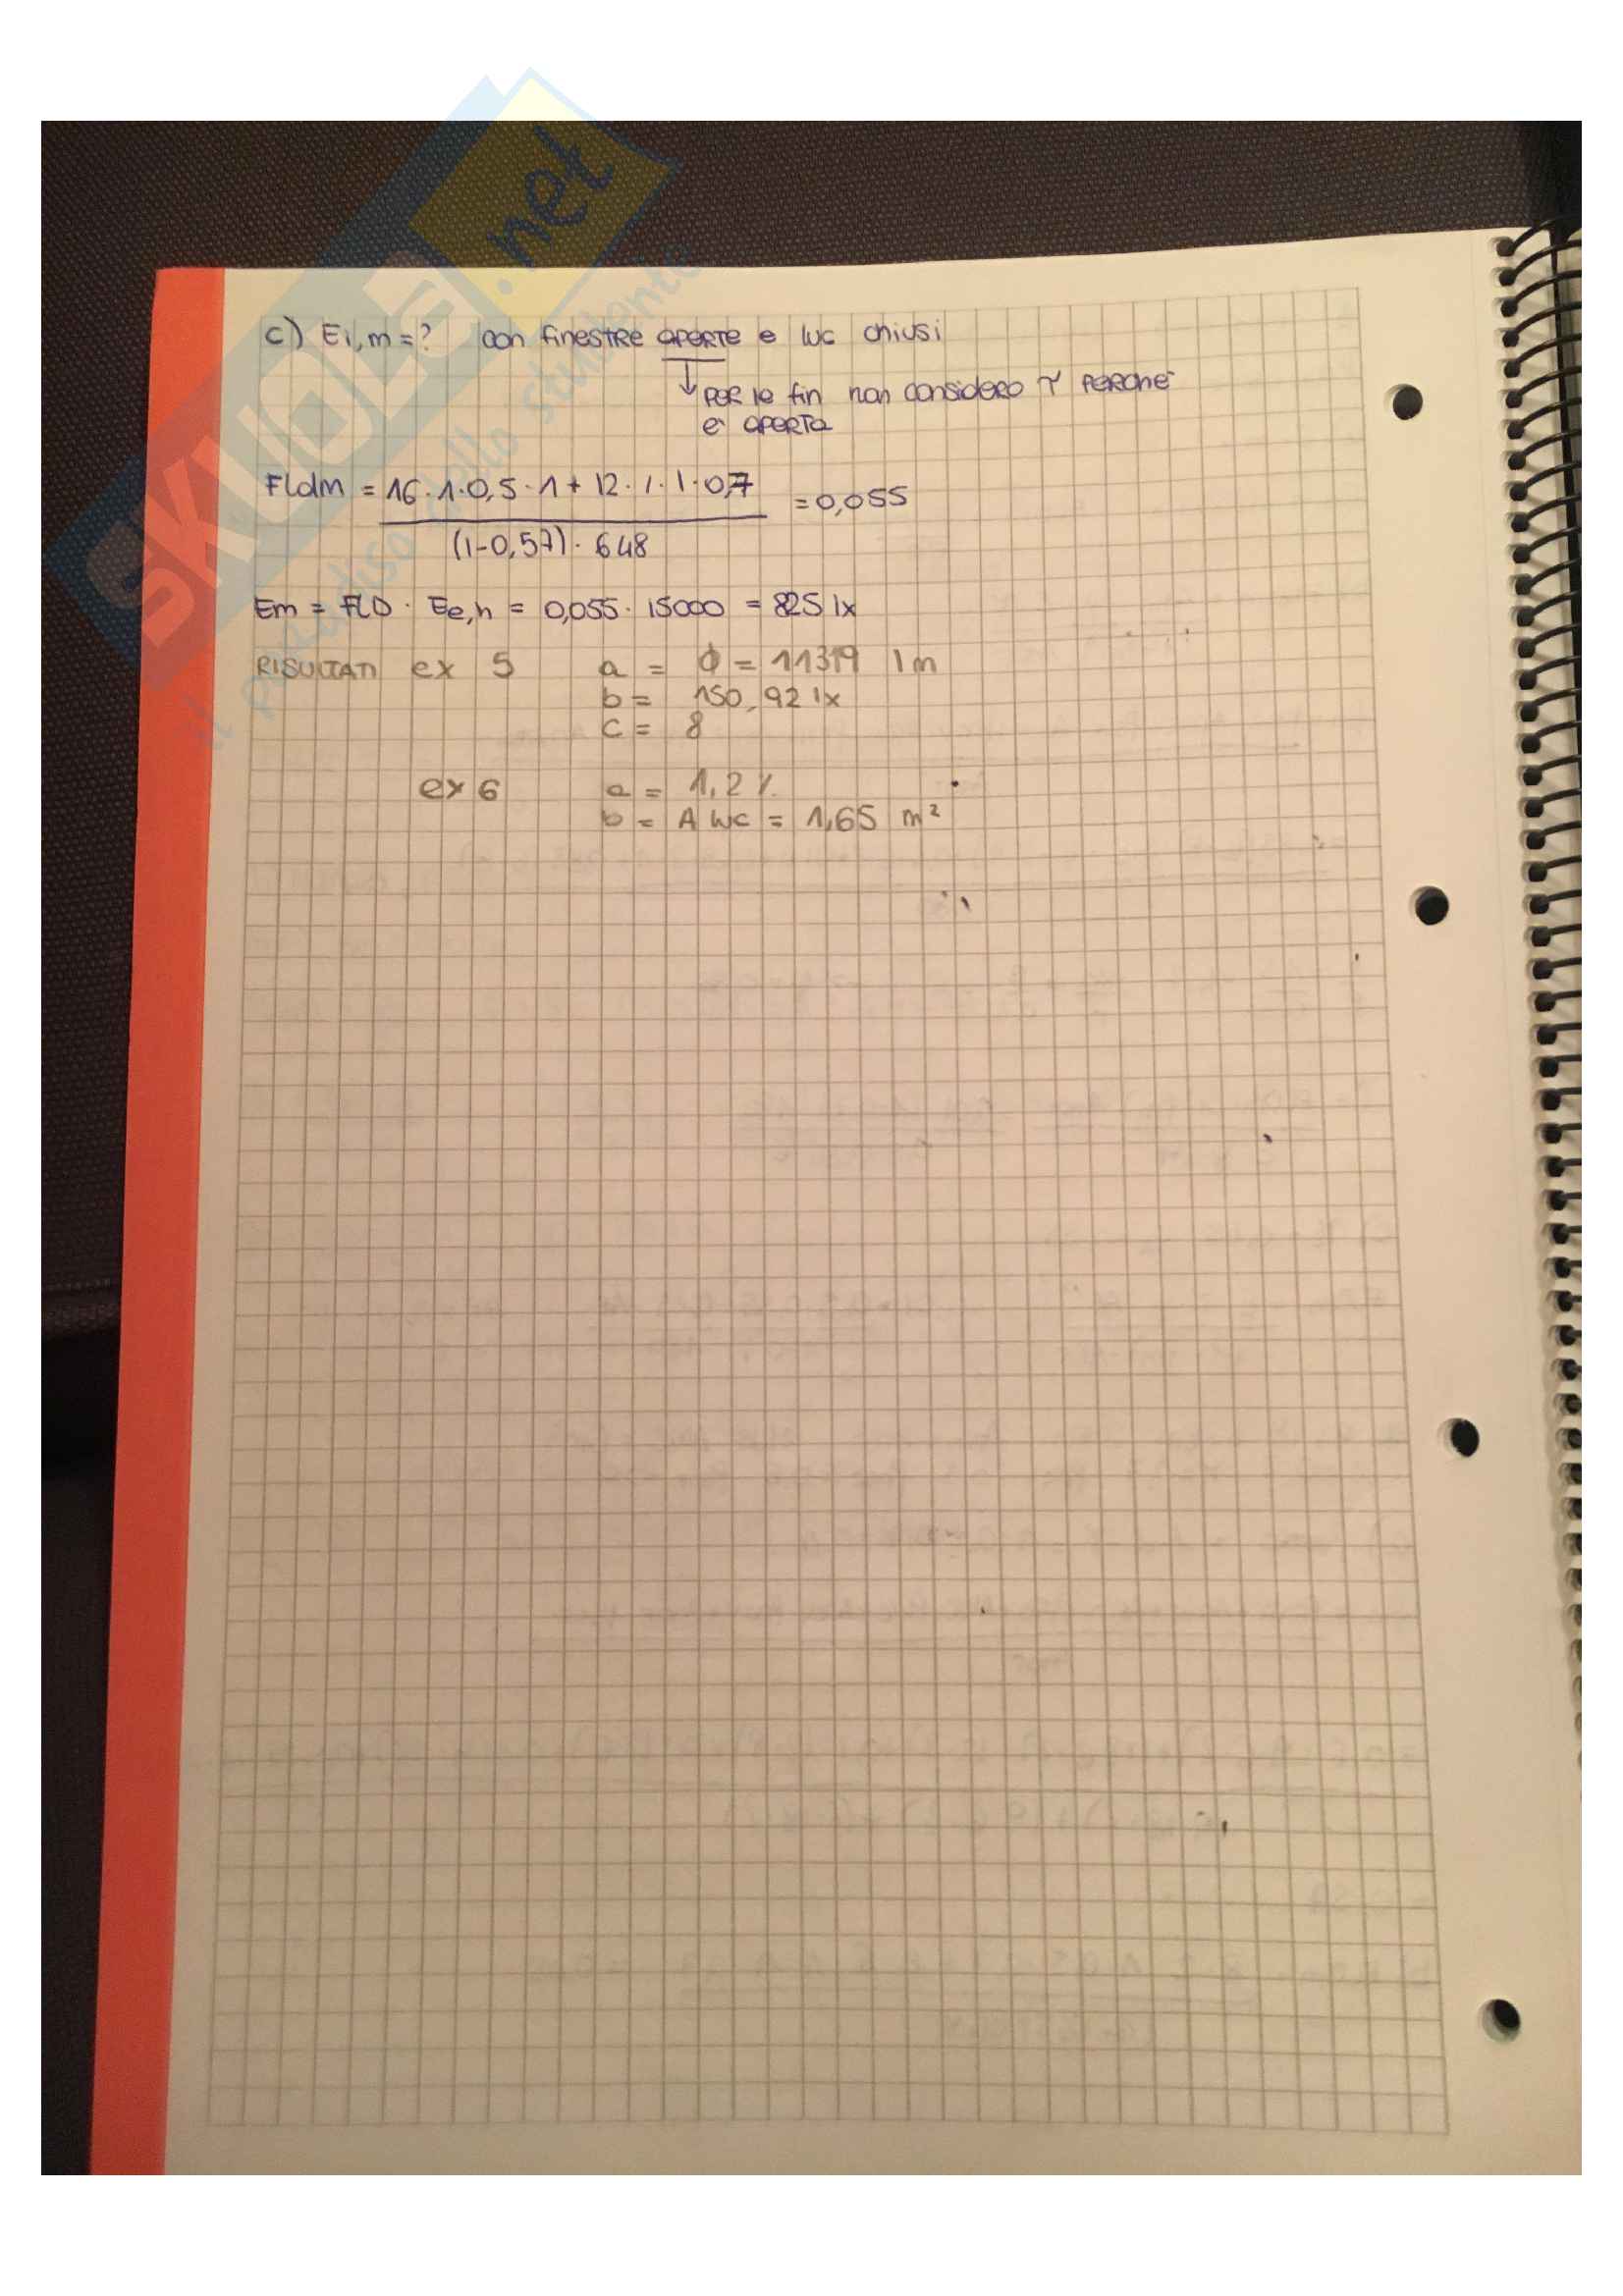 SKUOLA.net
il paradiso dello studente
c) Ei,m=? con finestre aperte e luc chiusi
↓ per le fin non considero τ perche
e' aperta
Fldm = 16·1·0,5·1 + 12·1·1·0,7 = 0,055
(1-0,57)· 648
Em = FLD · Ee,h = 0,055 · 15000 = 825 lx
RISULTATI ex 5 a = Φ = 11319 lm
b = 150,92 lx
c = 8
ex 6 a = 1,2 %
b = A luc = 1,65 m²